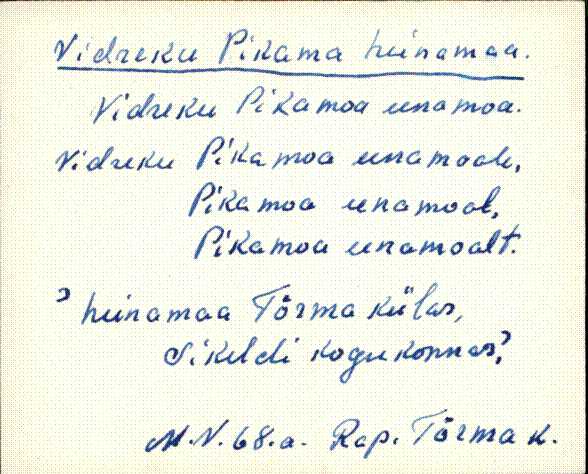 Vidreku Pikama heinamaa.
Vidreku Pikamoa einamoa.
Vidreku Pikamoa einamoale,
Pikamoa einamoal,
Pikamoa einamoalt.
? heinamaa Tõrma külas,
Sikeldi kogukonnas?
M.V. 68.a. Rap. Tõrma k.